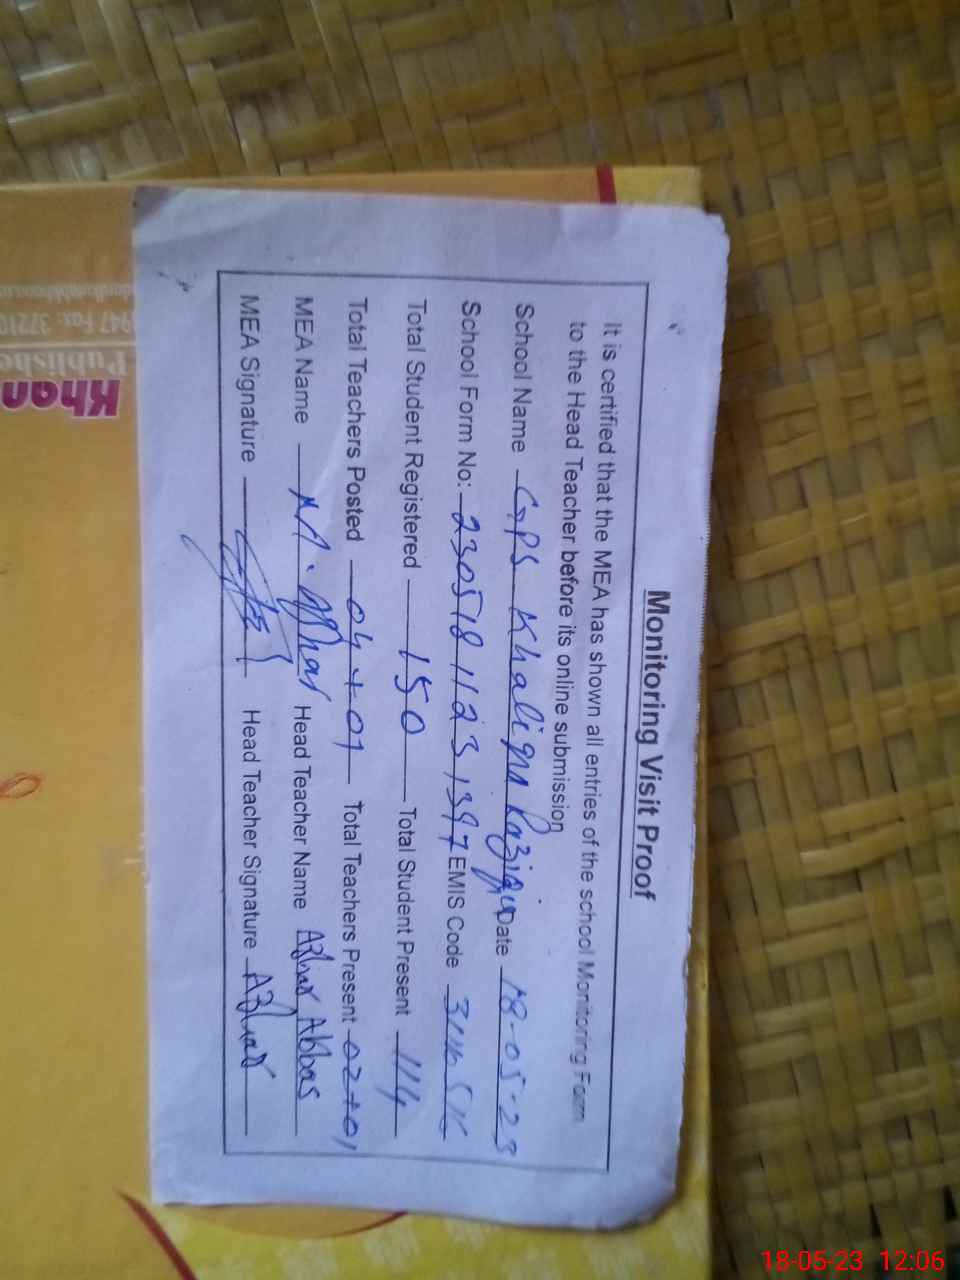 Monitoring Visit Proof
It is certified that the MEA has shown all entries of the school Monitoring Form
to the Head Teacher before its online submission
School Name GPS Khaliqna Razia Date 18-05-23
School Form No: 230518 1123 1397 EMIS Code
Total Student Registered 150 Total Student Present 114
Total Teachers Posted 04+01 Total Teachers Present 02+01
MEA Name M. Head Teacher Name Azhar Abbas
MEA Signature Head Teacher Signature Azhar
Khan
Publishe
947 Fax: 37210
18-05-23 12:06